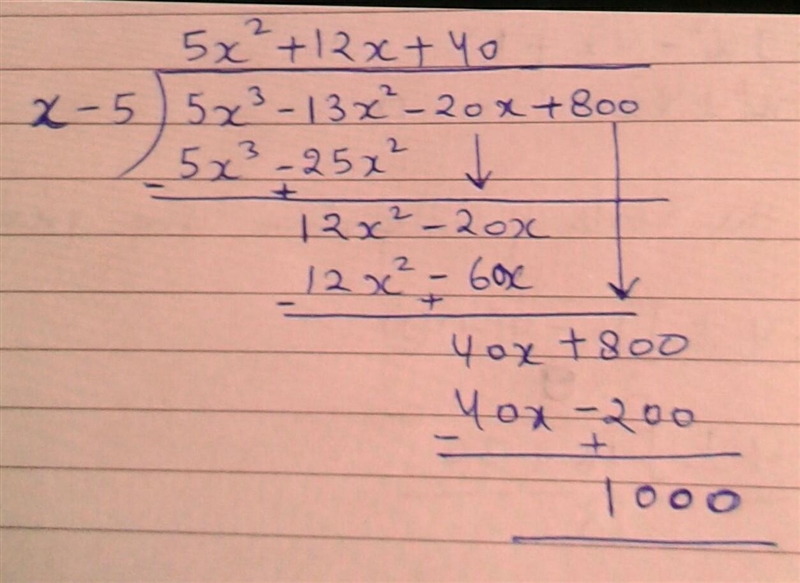 5x² + 12x + 40
x - 5 ) 5x³ - 13x² - 20x + 800
5x³ - 25x²
- +
12x² - 20x
12x² - 60x
- +
40x + 800
40x - 200
- +
1000